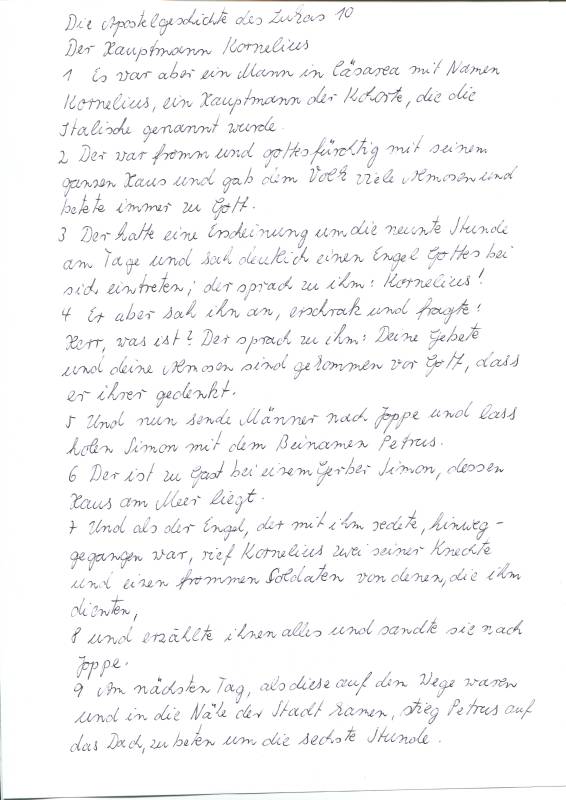 Die Apostelgeschichte des Lukas 10
Der Hauptmann Kornelius
1 Es war aber ein Mann in Cäsarea mit Namen
Kornelius, ein Hauptmann der Kohorte, die die
Italische genannt wurde.
2 Der war fromm und gottesfürchtig mit seinem
ganzen Haus und gab dem Volk viele Almosen und
betete immer zu Gott.
3 Der hatte eine Erscheinung um die neunte Stunde
am Tage und sah deutlich einen Engel Gottes bei
sich eintreten; der sprach zu ihm: Kornelius!
4 Er aber sah ihn an, erschrak und fragte:
Herr, was ist? Der sprach zu ihm: Deine Gebete
und deine Almosen sind gekommen vor Gott, dass
er ihrer gedenkt.
5 Und nun sende Männer nach Joppe und lass
holen Simon mit dem Beinamen Petrus.
6 Der ist zu Gast bei einem Gerber Simon, dessen
Haus am Meer liegt.
7 Und als der Engel, der mit ihm redete, hinweg-
gegangen war, rief Kornelius zwei seiner Knechte
und einen frommen Soldaten von denen, die ihm
dienten,
8 und erzählte ihnen alles und sandte sie nach
Joppe.
9 Am nächsten Tag, als diese auf dem Wege waren
und in die Nähe der Stadt kamen, stieg Petrus auf
das Dach, zu beten um die sechste Stunde.